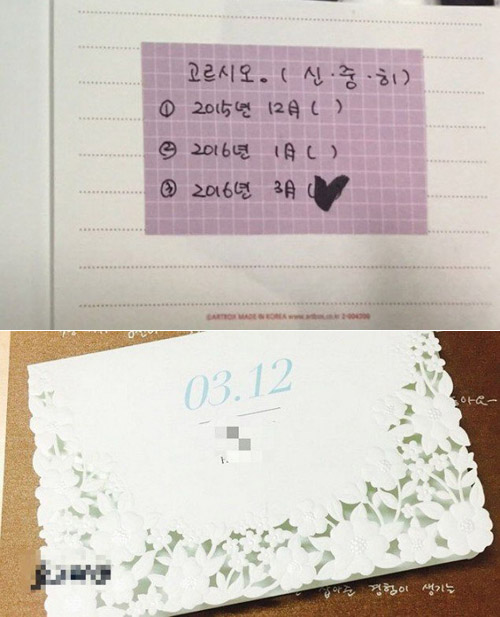 고르시오. ( 신·중·히)
① 2015년 12月 ( )
② 2016년 1月 ( )
③ 2016년 3月 (
©ARTBOX MADE IN KOREA www.artbox.co.kr
03.12
경험이 생기는